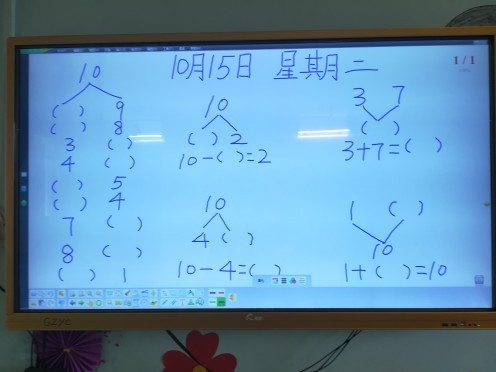 10月15日 星期二
1/1
10
( ) 9
( ) 8
3 ( )
4 ( )
( ) 5
( ) 4
7 ( )
8 ( )
( ) 1
10
( ) 2
10-( )=2
10
4 ( )
10-4=( )
3 7
( )
3+7=( )
1 ( )
10
1+( )=10